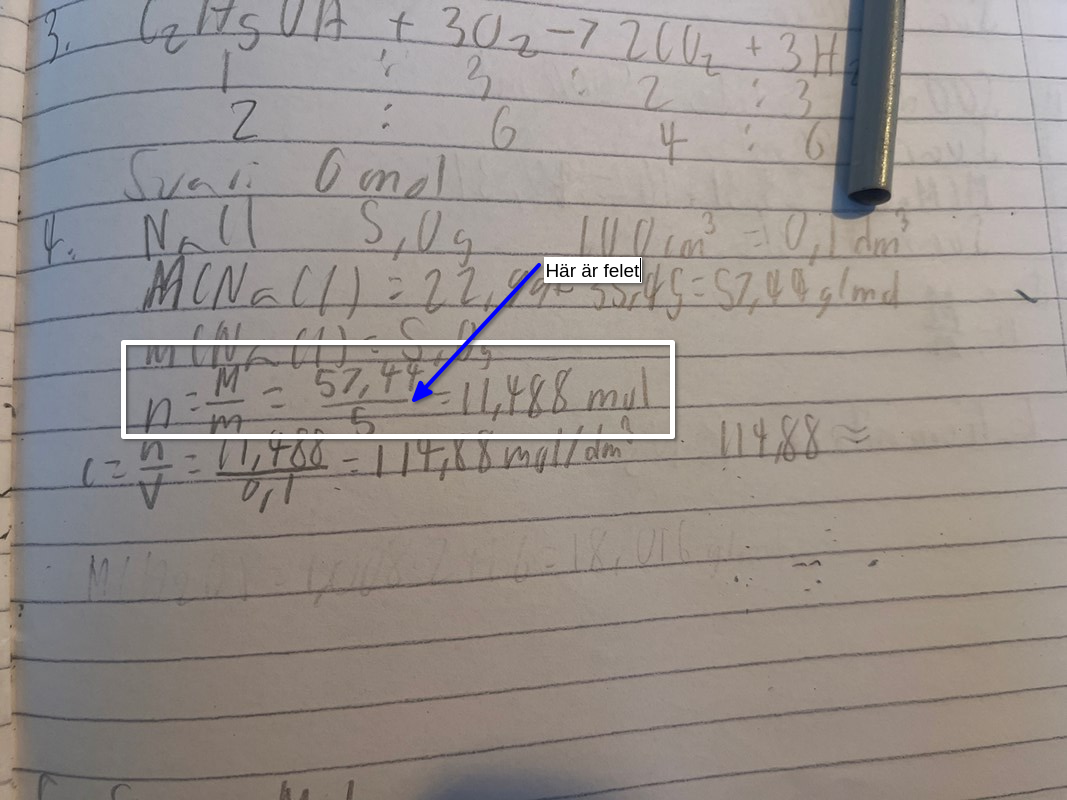 3. C₂H₅OH + 3O₂ → 2CO₂ + 3H₂
1 : 3 : 2 : 3
2 : 6 4 : 6
Svar: 6 mol
4. NaCl 5,0g 100cm³ = 0,1 dm³
M(NaCl) = 22,99+35,45=57,44 g/mol
m(NaCl) = 5,0g
Här är felet
n = M/m = 57,44/5 = 11,488 mol
c = n/V = 11,488/0,1 = 114,88 mol/dm³ 114,88 ≈
= 18,016 g/